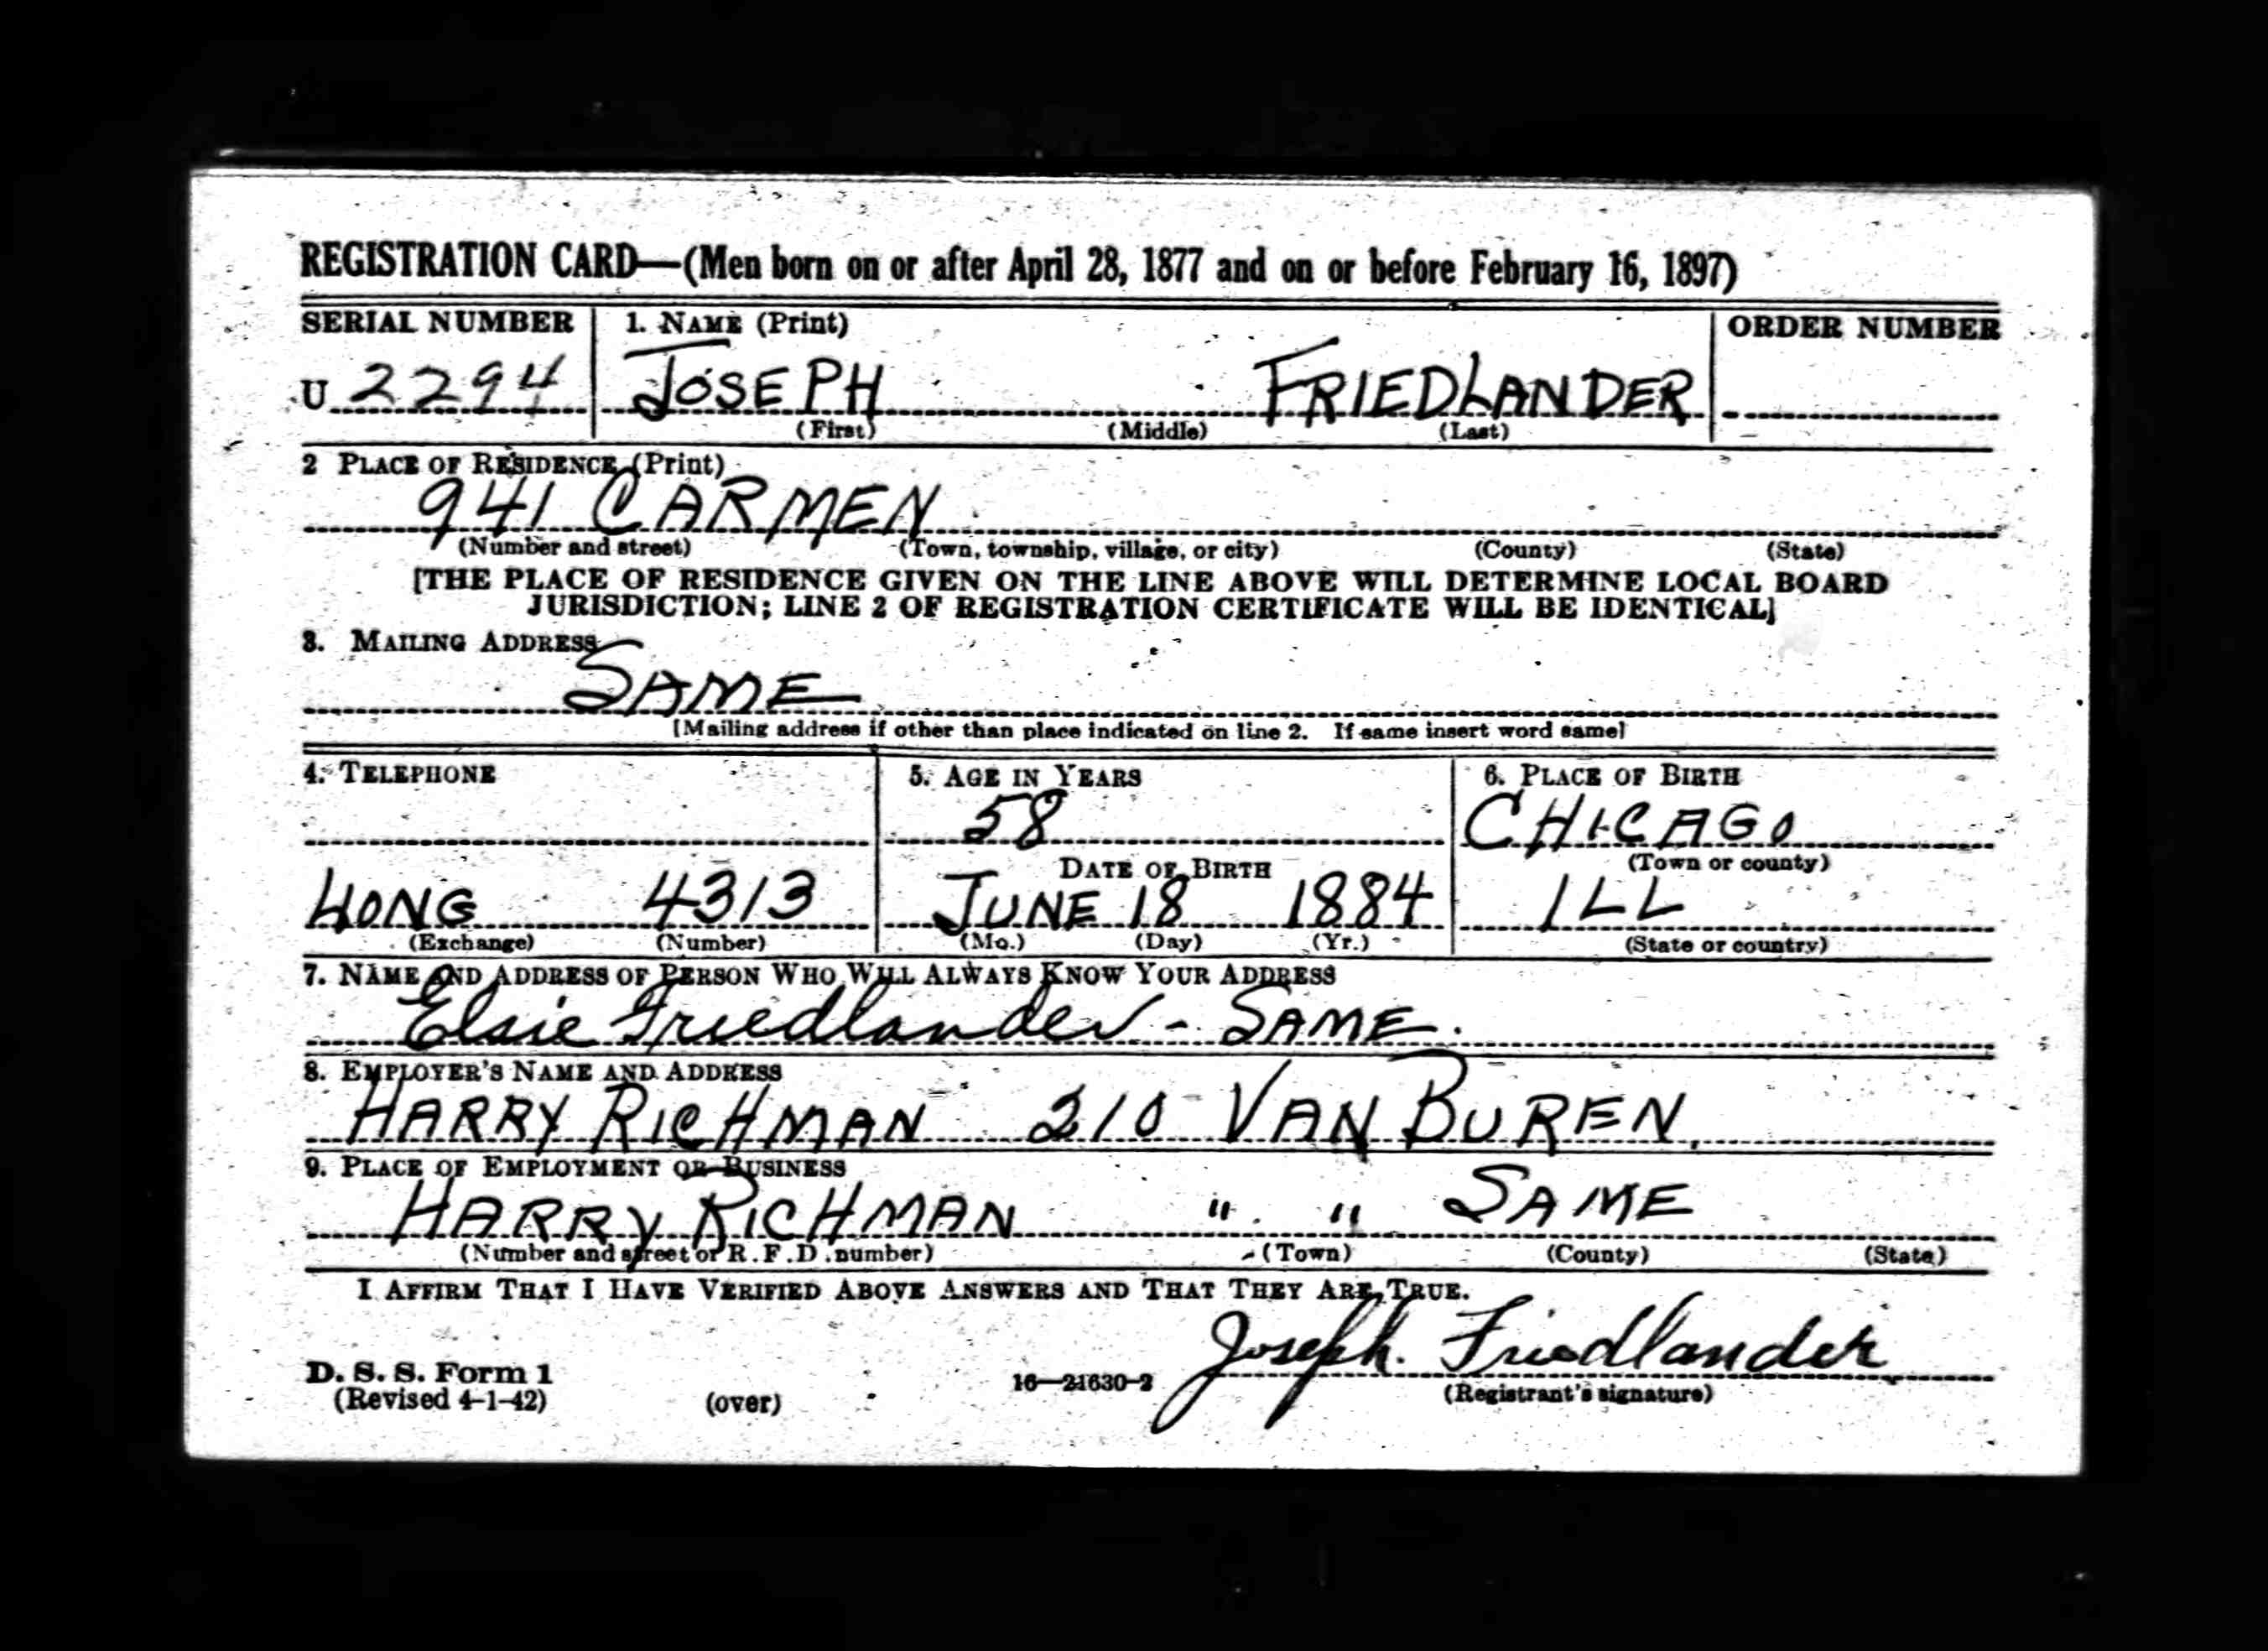 REGISTRATION CARD—(Men born on or after April 28, 1877 and on or before February 16, 1897)
SERIAL NUMBER 1. NAME (Print) ORDER NUMBER
U 2294 JOSEPH FRIEDLANDER
(First) (Middle) (Last)
2 PLACE OF RESIDENCE (Print)
941 CARMEN
(Number and street) (Town, township, village, or city) (County) (State)
[THE PLACE OF RESIDENCE GIVEN ON THE LINE ABOVE WILL DETERMINE LOCAL BOARD
JURISDICTION; LINE 2 OF REGISTRATION CERTIFICATE WILL BE IDENTICAL]
3. MAILING ADDRESS
SAME
[Mailing address if other than place indicated on line 2. If same insert word same]
4. TELEPHONE 5. AGE IN YEARS 6. PLACE OF BIRTH
58 CHICAGO
DATE OF BIRTH (Town or county)
LONG 4313 JUNE 18 1884 ILL
(Exchange) (Number) (Mo.) (Day) (Yr.) (State or country)
7. NAME AND ADDRESS OF PERSON WHO WILL ALWAYS KNOW YOUR ADDRESS
Elsie Friedlander - SAME.
8. EMPLOYER'S NAME AND ADDRESS
HARRY RICHMAN 210 VAN BUREN.
9. PLACE OF EMPLOYMENT OR BUSINESS
HARRY RICHMAN " " SAME
(Number and street or R.F.D. number) (Town) (County) (State)
I AFFIRM THAT I HAVE VERIFIED ABOVE ANSWERS AND THAT THEY ARE TRUE.
Joseph. Friedlander
D. S. S. Form 1
(Revised 4-1-42) (over) 16—21630-2 (Registrant's signature)